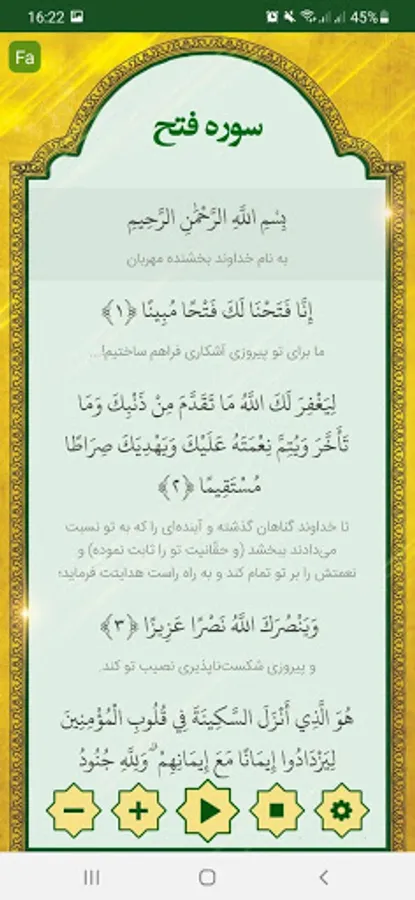 16:22
45%
Fa
سوره فتح
بِسْمِ اللَّهِ الرَّحْمَٰنِ الرَّحِيمِ
به نام خداوند بخشنده مهربان
إِنَّا فَتَحْنَا لَكَ فَتْحًا مُبِينًا ﴿١﴾
ما برای تو پیروزی آشکاری فراهم ساختیم!...
لِيَغْفِرَ لَكَ اللَّهُ مَا تَقَدَّمَ مِنْ ذَنْبِكَ وَمَا
تَأَخَّرَ وَيُتِمَّ نِعْمَتَهُ عَلَيْكَ وَيَهْدِيَكَ صِرَاطًا
مُسْتَقِيمًا ﴿٢﴾
تا خداوند گناهان گذشته و آینده‌ای را که به تو نسبت
می‌دادند ببخشد (و حقّانیت تو را ثابت نموده) و
نعمتش را بر تو تمام کند و به راه راست هدایتت فرماید؛
وَيَنْصُرَكَ اللَّهُ نَصْرًا عَزِيزًا ﴿٣﴾
و پیروزی شکست‌ناپذیری نصیب تو کند.
هُوَ الَّذِي أَنْزَلَ السَّكِينَةَ فِي قُلُوبِ الْمُؤْمِنِينَ
لِيَزْدَادُوا إِيمَانًا مَعَ إِيمَانِهِمْ ۗ وَلِلَّهِ جُنُودُ